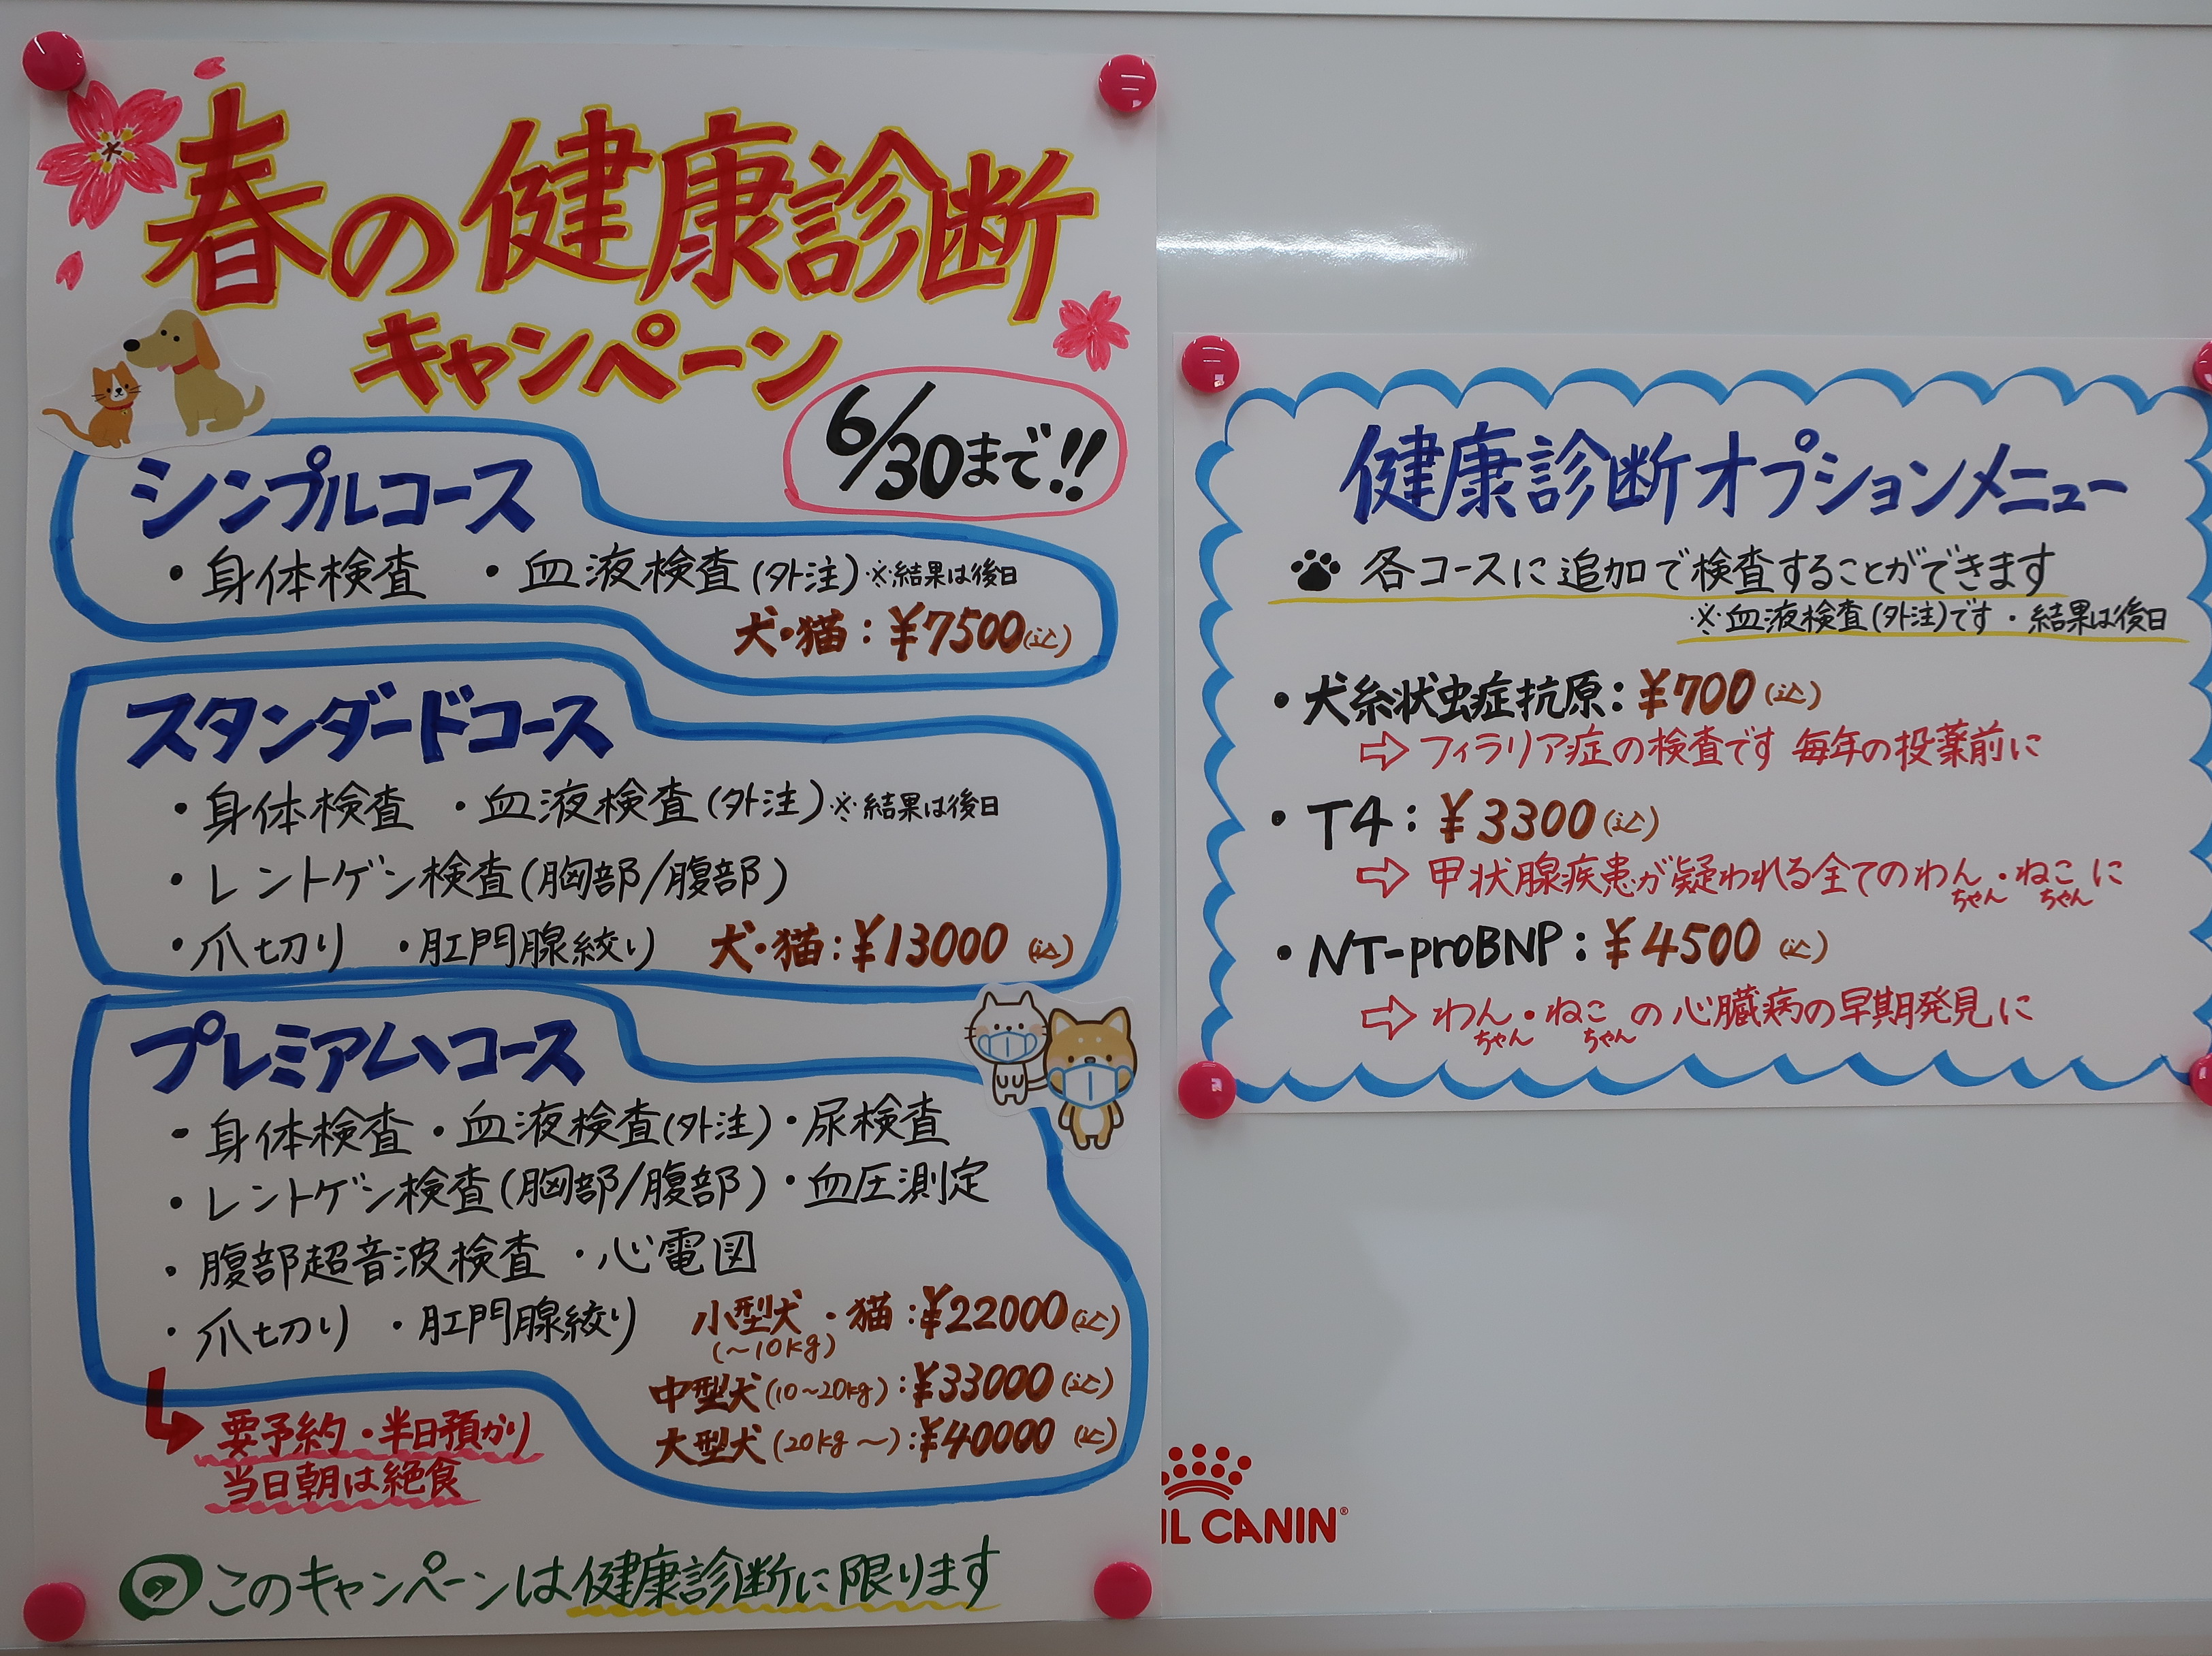 春の健康診断
キャンペーン
6/30まで!!
シンプルコース
・身体検査 ・血液検査(外注)※結果は後日
犬・猫:¥7500(込)
スタンダードコース
・身体検査 ・血液検査(外注)※結果は後日
・レントゲン検査(胸部/腹部)
・爪切り ・肛門腺絞り 犬・猫:¥13000(込)
プレミアムコース
・身体検査・血液検査(外注)・尿検査
・レントゲン検査(胸部/腹部)・血圧測定
・腹部超音波検査 ・心電図
・爪切り ・肛門腺絞り 小型犬・猫:¥22000(込)
(~10kg)
中型犬(10~20kg):¥33000(込)
大型犬(20kg~):¥40000(込)
要予約・半日預かり
当日朝は絶食
このキャンペーンは健康診断に限ります
健康診断オプションメニュー
各コースに追加で検査することができます
※血液検査(外注)です・結果は後日
・犬糸状虫症抗原:¥700(込)
⇨フィラリア症の検査です 毎年の投薬前に
・T4:¥3300(込)
⇨甲状腺疾患が疑われる全てのわんちゃん・ねこちゃんに
・NT-proBNP:¥4500(込)
⇨わんちゃん・ねこちゃんの心臓病の早期発見に
IL CANIN®